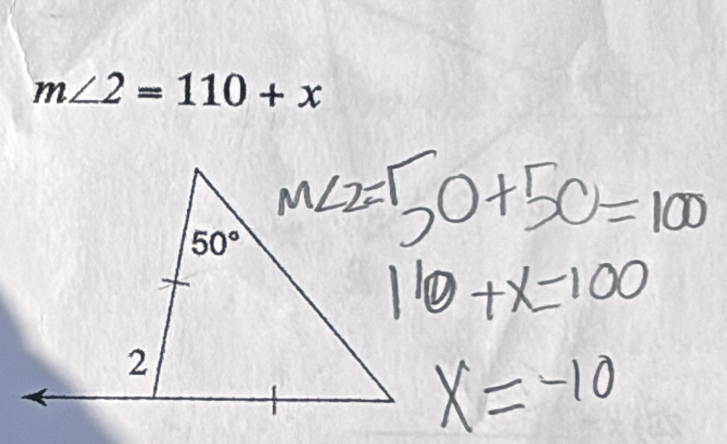 m∠2 = 110 + x
50°
2
m∠2=50+50=100
110+x=100
x=-10